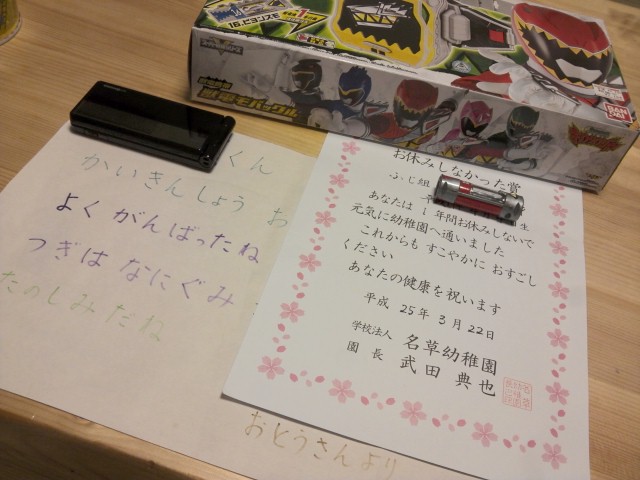 16.ピヨンスモ
獣電モバックル
BANDAI
くん
かいきんしょう お
よく がんばったね
つぎは なにぐみ
たのしみだね
おとうさんより
お休みしなかった賞
ふじ組
生
あなたは 1年間お休みしないで
元気に幼稚園へ通いました
これからも すこやかに おすごし
ください
あなたの健康を祝います
平成 25年 3月 22日
学校法人 名草幼稚園
園長 武田典也